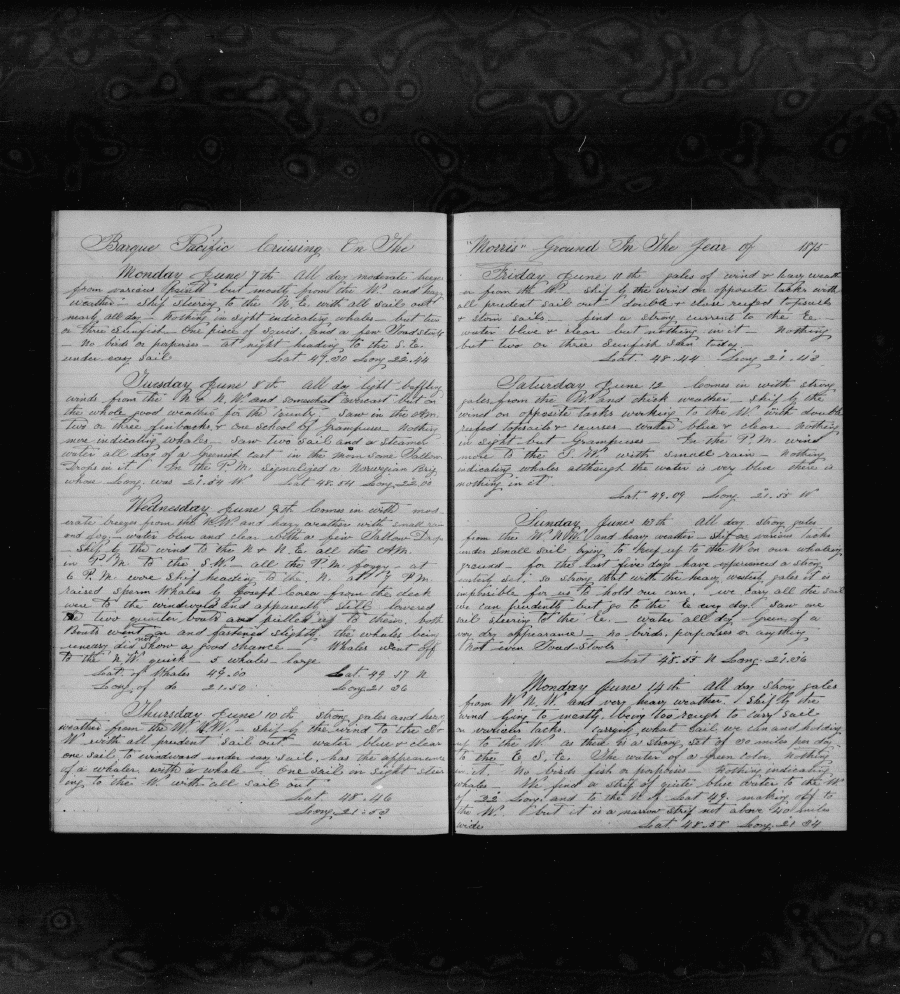 Barque Pacific Cruising On The
Monday June 7th All day moderate breezes
from various Points but mostly from the W. and hazy
weather Ship steering to the N. E. with all sail out
nearly all day Nothing in sight indicating whales but two
or three Sunfish One piece of Squid and a few Toad Stools
No bird or porpoises at night heading to the S. E.
under easy sail Lat 49.30 Long 22.44
Tuesday June 8th All day light baffling
winds from the N & N. W. and somewhat overcast but on
the whole good weather for the country saw in the A.m.
two or three finbacks & one school of Grampuses Nothing
more indicating whales Saw two sail and a steamer
water all day of a greenish cast in the morn some Tallow
Drops in it In the P.M. signalized a Norwegian Brig
whose Long. was 21.54 W Lat 48.54 Long 22.00
Wednesday June 9th Comes in with mod
erate breezes from the N.W. and hazy weather with small rain
and fog water blue and clear with a few Tallow Drops
Ship by the wind to the N & N. E. all the A.M.
in P.M. to the S.W. all the P.M. foggy at
6 P.M. wore Ship heading to the N. at 7 P.M.
raised Sperm Whales by Joseph Corea from the deck
were to the windward and apparently still lowered
the two quarter boats and pulled up to them, both
Boats went on and fastened slightly, the whales being
uneasy did not show a good chance Whales went off
to the N.W. quick 5 whales large
Lat. of Whales 49.00 Lat. 49 17 N
Long of do 21.50 Long 21 36
Thursday June 10th strong gales and hazy
weather from the W. N.W. Ship by the wind to the S &
W. with all prudent sail out water blue & clear
one sail to windward under easy sail, has the appearance
of a whaler with a whale one sail in sight steer
ing to the W. with all sail out
Lat 48.46
Long 21.53
"Morris" Ground In The Year of 1875
Friday June 11th gales of wind & hazy weath
er from the W. Ship by the wind on opposite tacks with
all prudent sail out double & close reefed topsails
& storm sails find a strong current to the E.
water blue & clear but nothing in it Nothing
but two or three Sunfish saw today
Lat 48.44 Long 21.43
Saturday June 12 Comes in with strong
gales from the W. and thick weather Ship by the
wind on opposite tacks working to the W. with double
reefed topsails & courses water blue & clear nothing
in sight but Grampuses In the P.M. wind
more to the S.W. with small rain Nothing
indicating whales although the water is very blue there is
nothing in it
Lat 49.09 Long 21.58 W
Sunday June 13th All day strong gales
from the W. N.W. and heavy weather ship on various tacks
under small sail trying to keep up to the W on our whaling
ground for the last five days have experienced a strong
easterly set; so strong that with the heavy, westerly gales it is
impossible for us to hold our own. we carry all the sail
we can prudently but go to the E. every day. Saw one
sail steering to the E. water all day Green, of a
very dry appearance no birds, porpoises or anything
Not even Toad Stools
Lat 48.55 N Long 21.36
Monday June 14th All day strong gales
from W. N. W. and very heavy weather. Ship by the
wind lying to mostly, being too rough to carry sail
on various tacks carrying what sail we can and holding
up to the W. as there is a strong set of 30 miles per day
to the E. S. E. The water of a green color nothing
in it. No birds fish or porpoises Nothing indicating
whales We find a strip of quite blue water to the W
of 22 Long. and to the N of Lat 49. making off to
the W. but it is a narrow strip not above 40 miles
wide Lat. 48.58 Long. 21 34